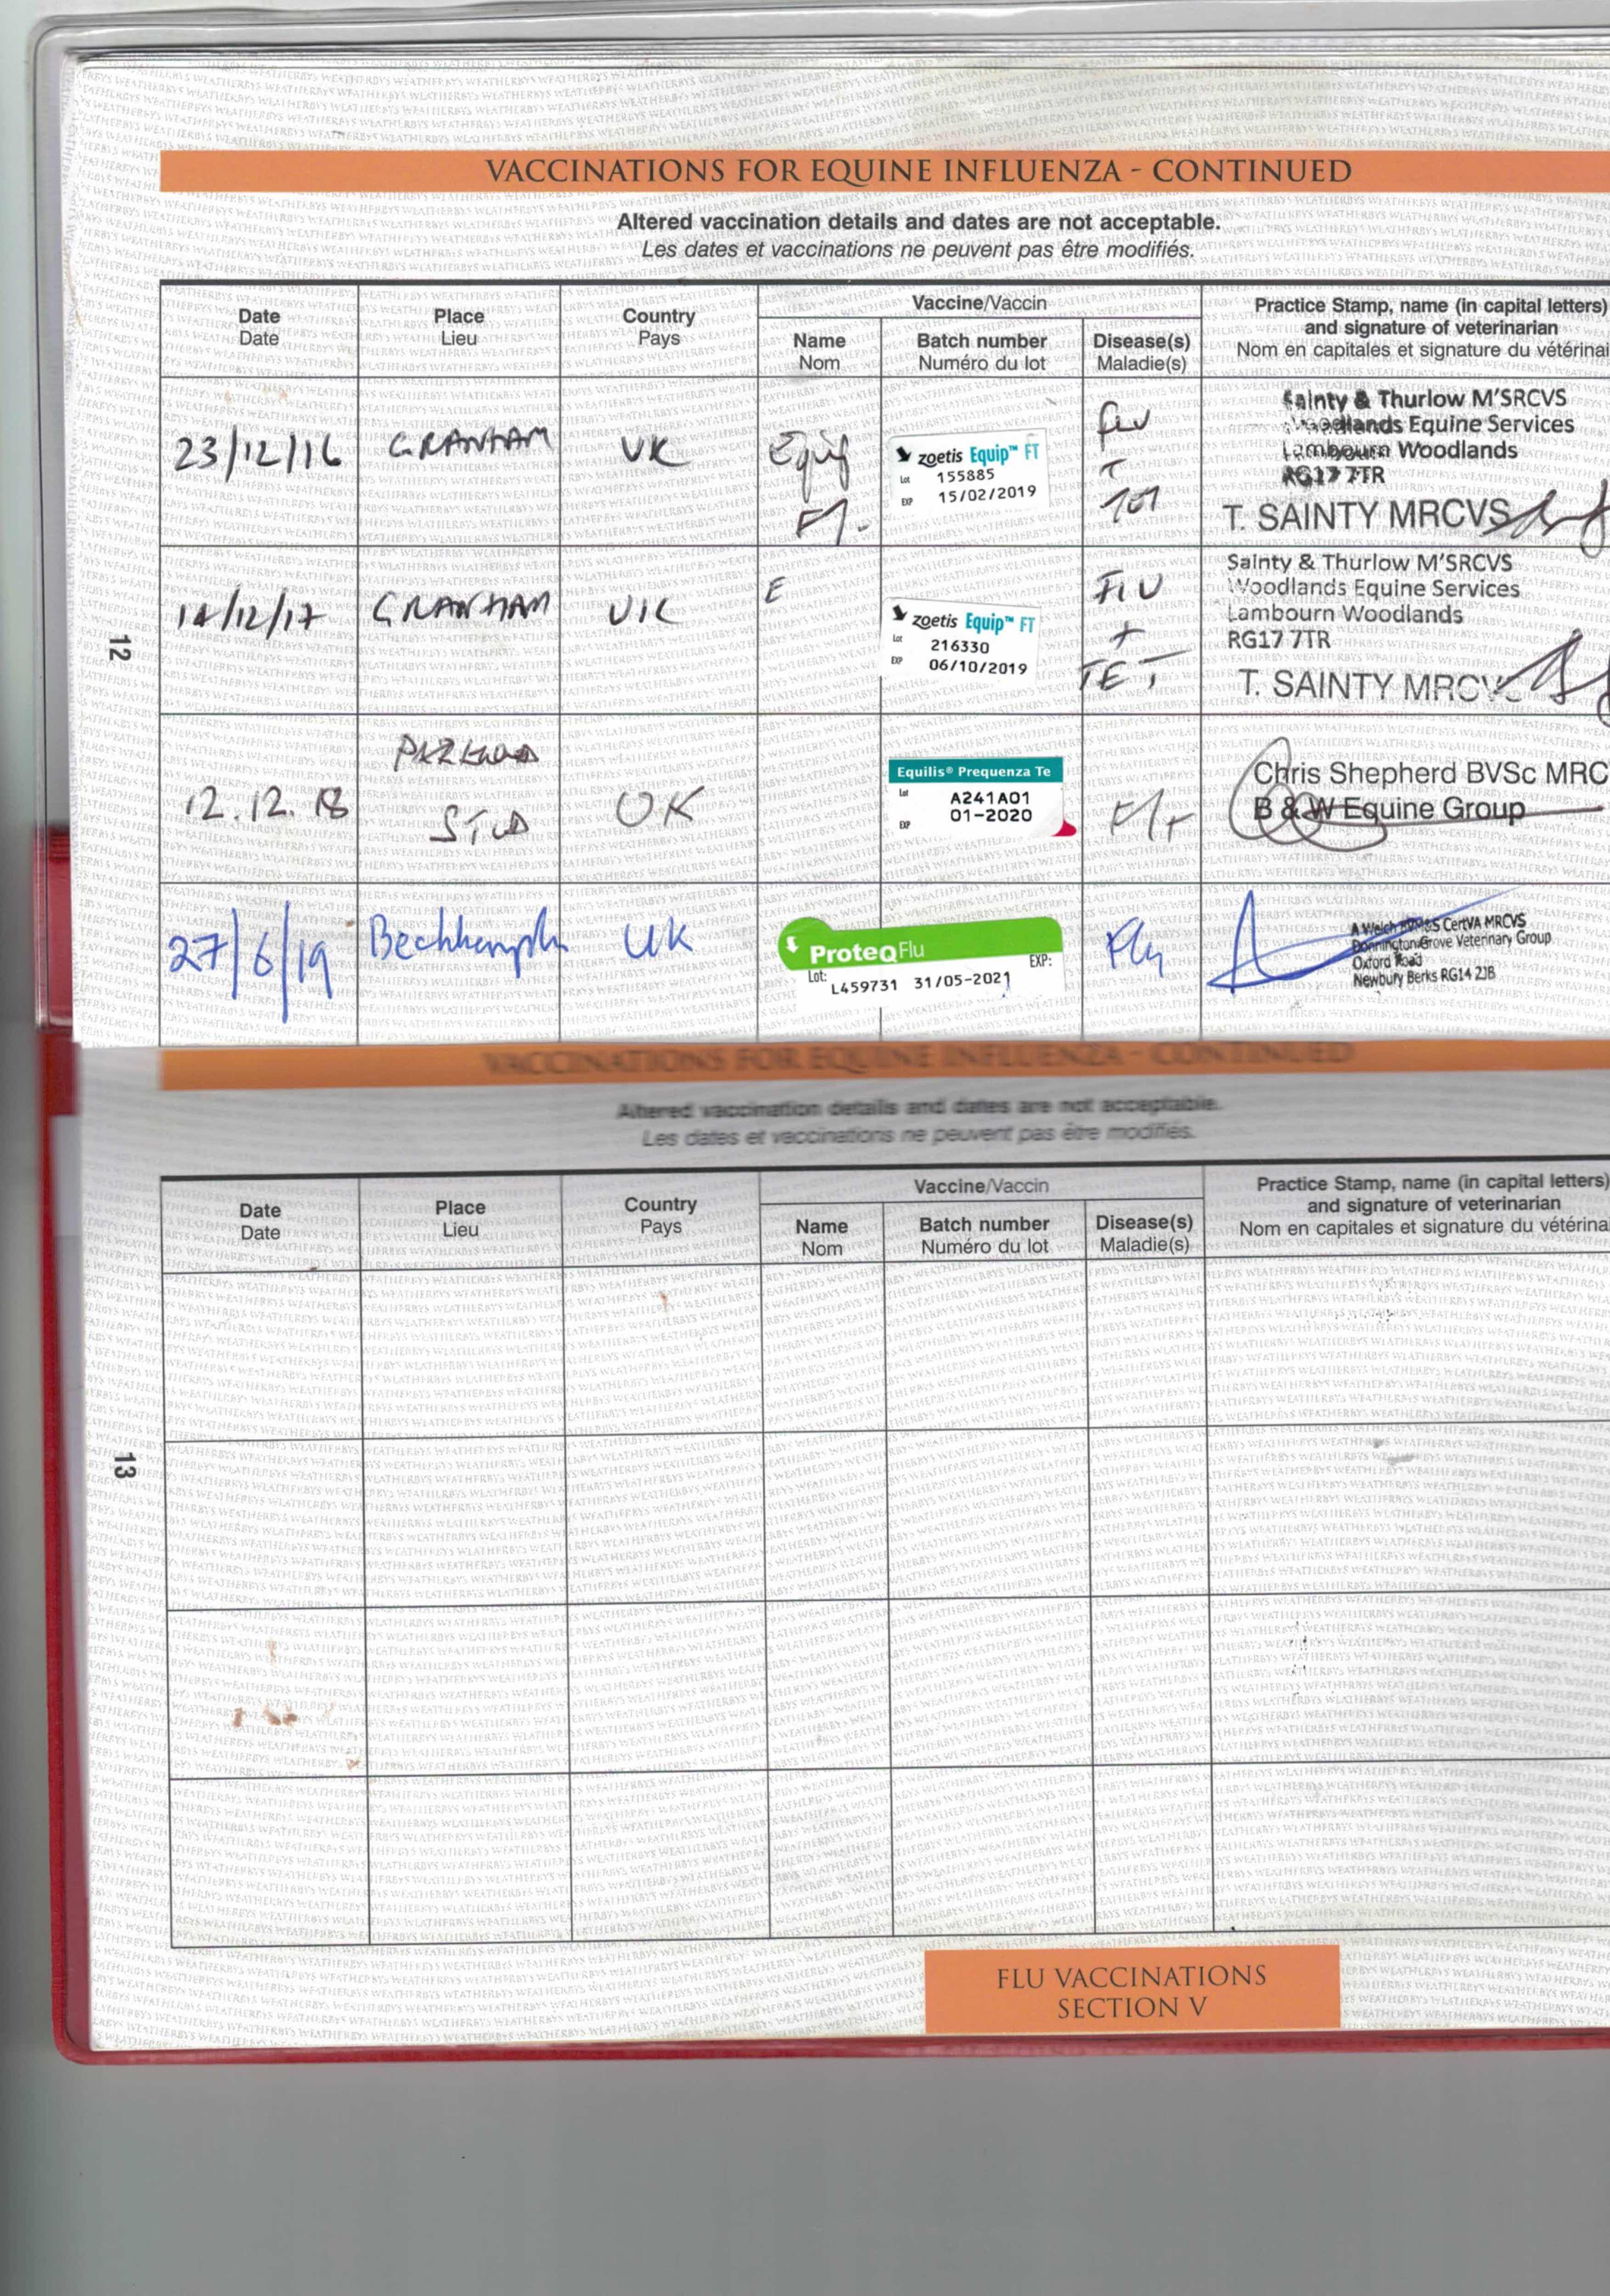 VACCINATIONS FOR EQUINE INFLUENZA - CONTINUED
Altered vaccination details and dates are not acceptable.
Les dates et vaccinations ne peuvent pas être modifiés.
Date Place Country Vaccine/Vaccin Practice Stamp, name (in capital letters)
Date Lieu Pays and signature of veterinarian
Name Batch number Disease(s) Nom en capitales et signature du vétérinai
Nom Numéro du lot Maladie(s)
23/12/16 GRANHAM UK Equip
FT.
zoetis Equip™ FT
Lot 155885
EXP 15/02/2019
FLU
T
Sainty & Thurlow M'SRCVS
Woodlands Equine Services
Lambourn Woodlands
RG17 7TR
T. SAINTY MRCVS
14/12/17 GRANHAM UK E
zoetis Equip™ FT
Lot 216330
EXP 06/10/2019
FLU
+
TET
Sainty & Thurlow M'SRCVS
Woodlands Equine Services
Lambourn Woodlands
RG17 7TR
T. SAINTY MRCVS
12
12.12.18
STUD
UK
Equilis® Prequenza Te
Lot A241A01
EXP 01-2020
F/T
Chris Shepherd BVSc MRC
B & W Equine Group
27/6/19 Beckhampton UK
ProteqFlu
Lot: L459731 31/05-2021 EXP:
Flu
A Welch BVM&S CertVA MRCVS
Donnington Grove Veterinary Group
Oxford Road
Newbury Berks RG14 2JB
VACCINATIONS FOR EQUINE INFLUENZA - CONTINUED
Altered vaccination details and dates are not acceptable.
Les dates et vaccinations ne peuvent pas être modifiés.
Date Place Country Vaccine/Vaccin Practice Stamp, name (in capital letters)
Date Lieu Pays and signature of veterinarian
Name Batch number Disease(s) Nom en capitales et signature du vétérina
Nom Numéro du lot Maladie(s)
13
FLU VACCINATIONS
SECTION V